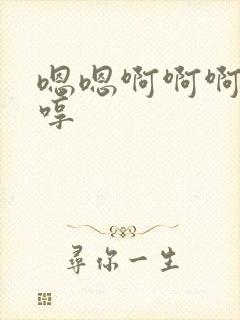 嗯嗯啊啊啊
哼
尋你一生